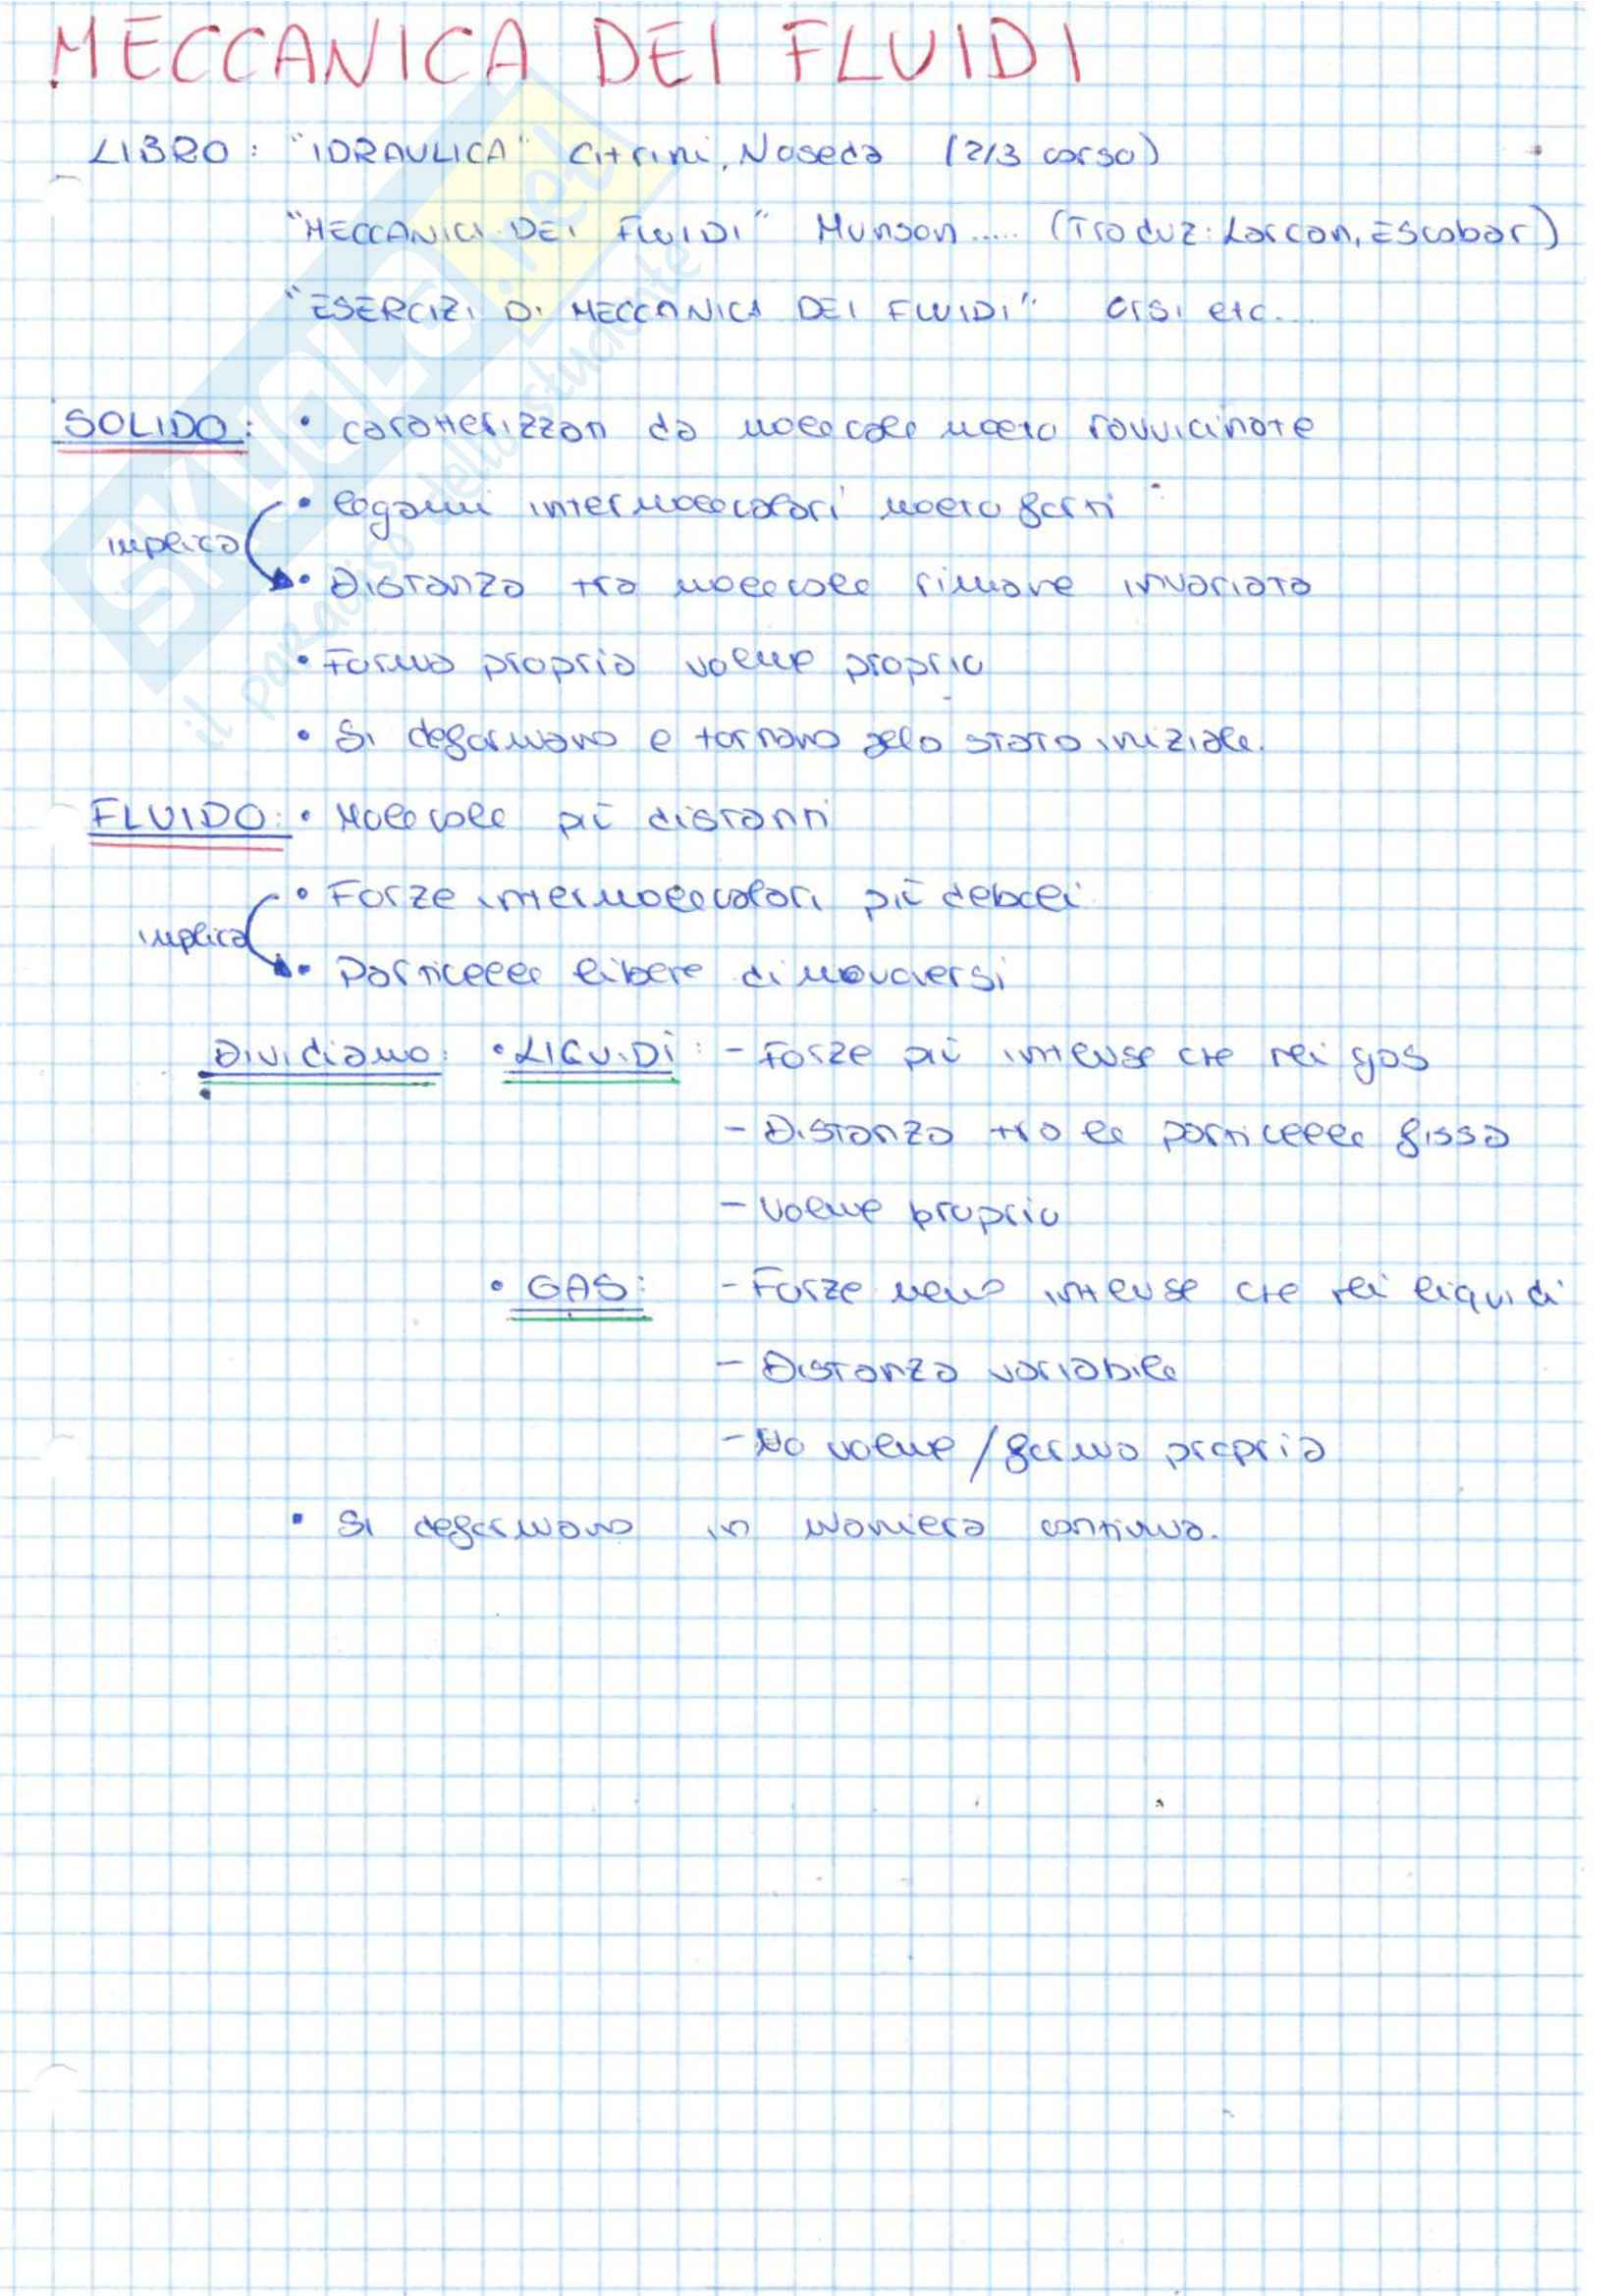 MECCANICA DEI FLUIDI
LIBRO: "IDRAULICA" Citrini, Noseda (2/3 corso)
"MECCANICA DEI FLUIDI" Munson..... (Traduz: Larcan, Escobar)
"ESERCIZI DI MECCANICA DEI FLUIDI" Orsi etc...
SOLIDO: • caratterizzati da molecole molto ravvicinate
• legami intermolecolari molto forti
implica
• Distanza tra molecole rimane invariata
• Forma propria volume proprio
• Si deformano e tornano allo stato iniziale.
FLUIDO: • Molecole più distanti
• Forze intermolecolari più deboli
implica
• Particelle libere di muoversi
Dividiamo: • LIQUIDI: - Forze più intense che nei gas
- Distanza tra le particelle fissa
- Volume proprio
• GAS: - Forze meno intense che nei liquidi
- Distanza variabile
- No volume/forma propria
• Si deformano in maniera continua.
SKUOLA.net
il paradiso dello studente